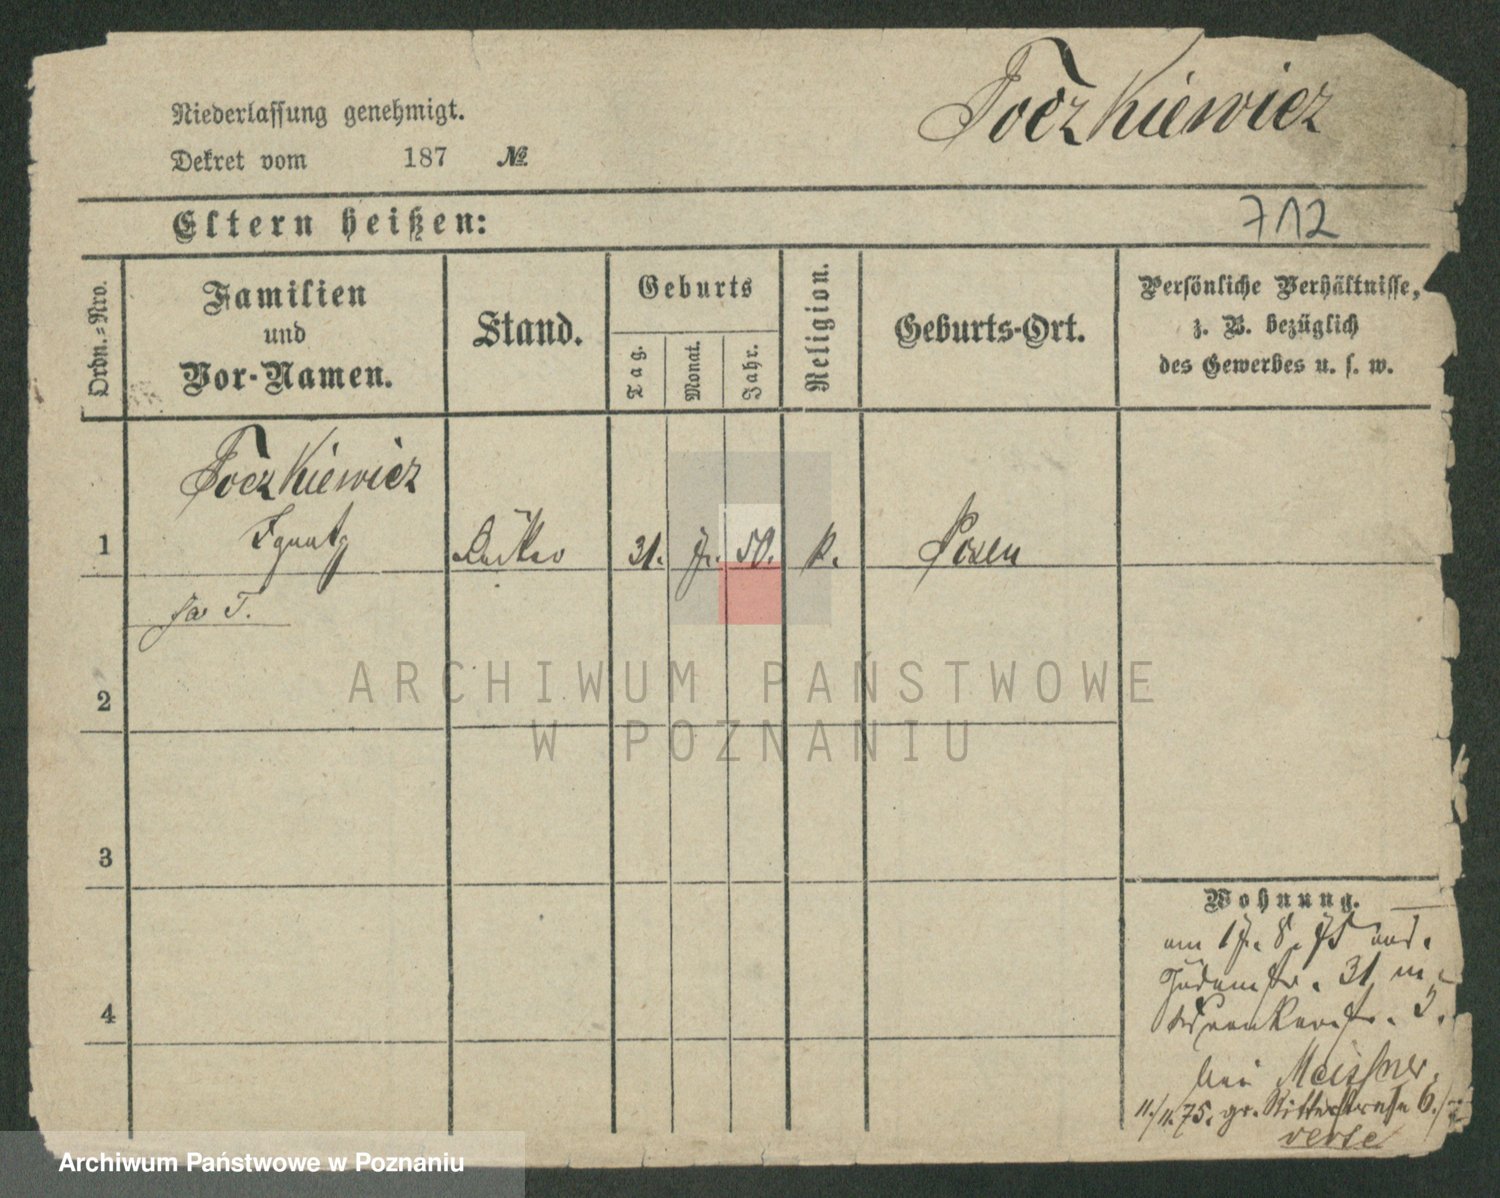 Niederlassung genehmigt.
Dekret vom 187 №
Toczkiewicz
Eltern heißen:
712
Ordn.=Nro.
Familien
und
Vor-Namen.
Stand.
Geburts
Tag.
Monat.
Jahr.
Religion.
Geburts-Ort.
Persönliche Verhältnisse,
z. B. bezüglich
des Gewerbes u. s. w.
Toczkiewicz
1 Ignatz 31. 7. 50. k. Posen
2
3
4
Wohnung.
am 17. 8. 75
Judenstr. 31
bei Meissner,
11./11. 75. gr. Ritterstrasse 6.
verte
ARCHIWUM PAŃSTWOWE
W POZNANIU
Archiwum Państwowe w Poznaniu